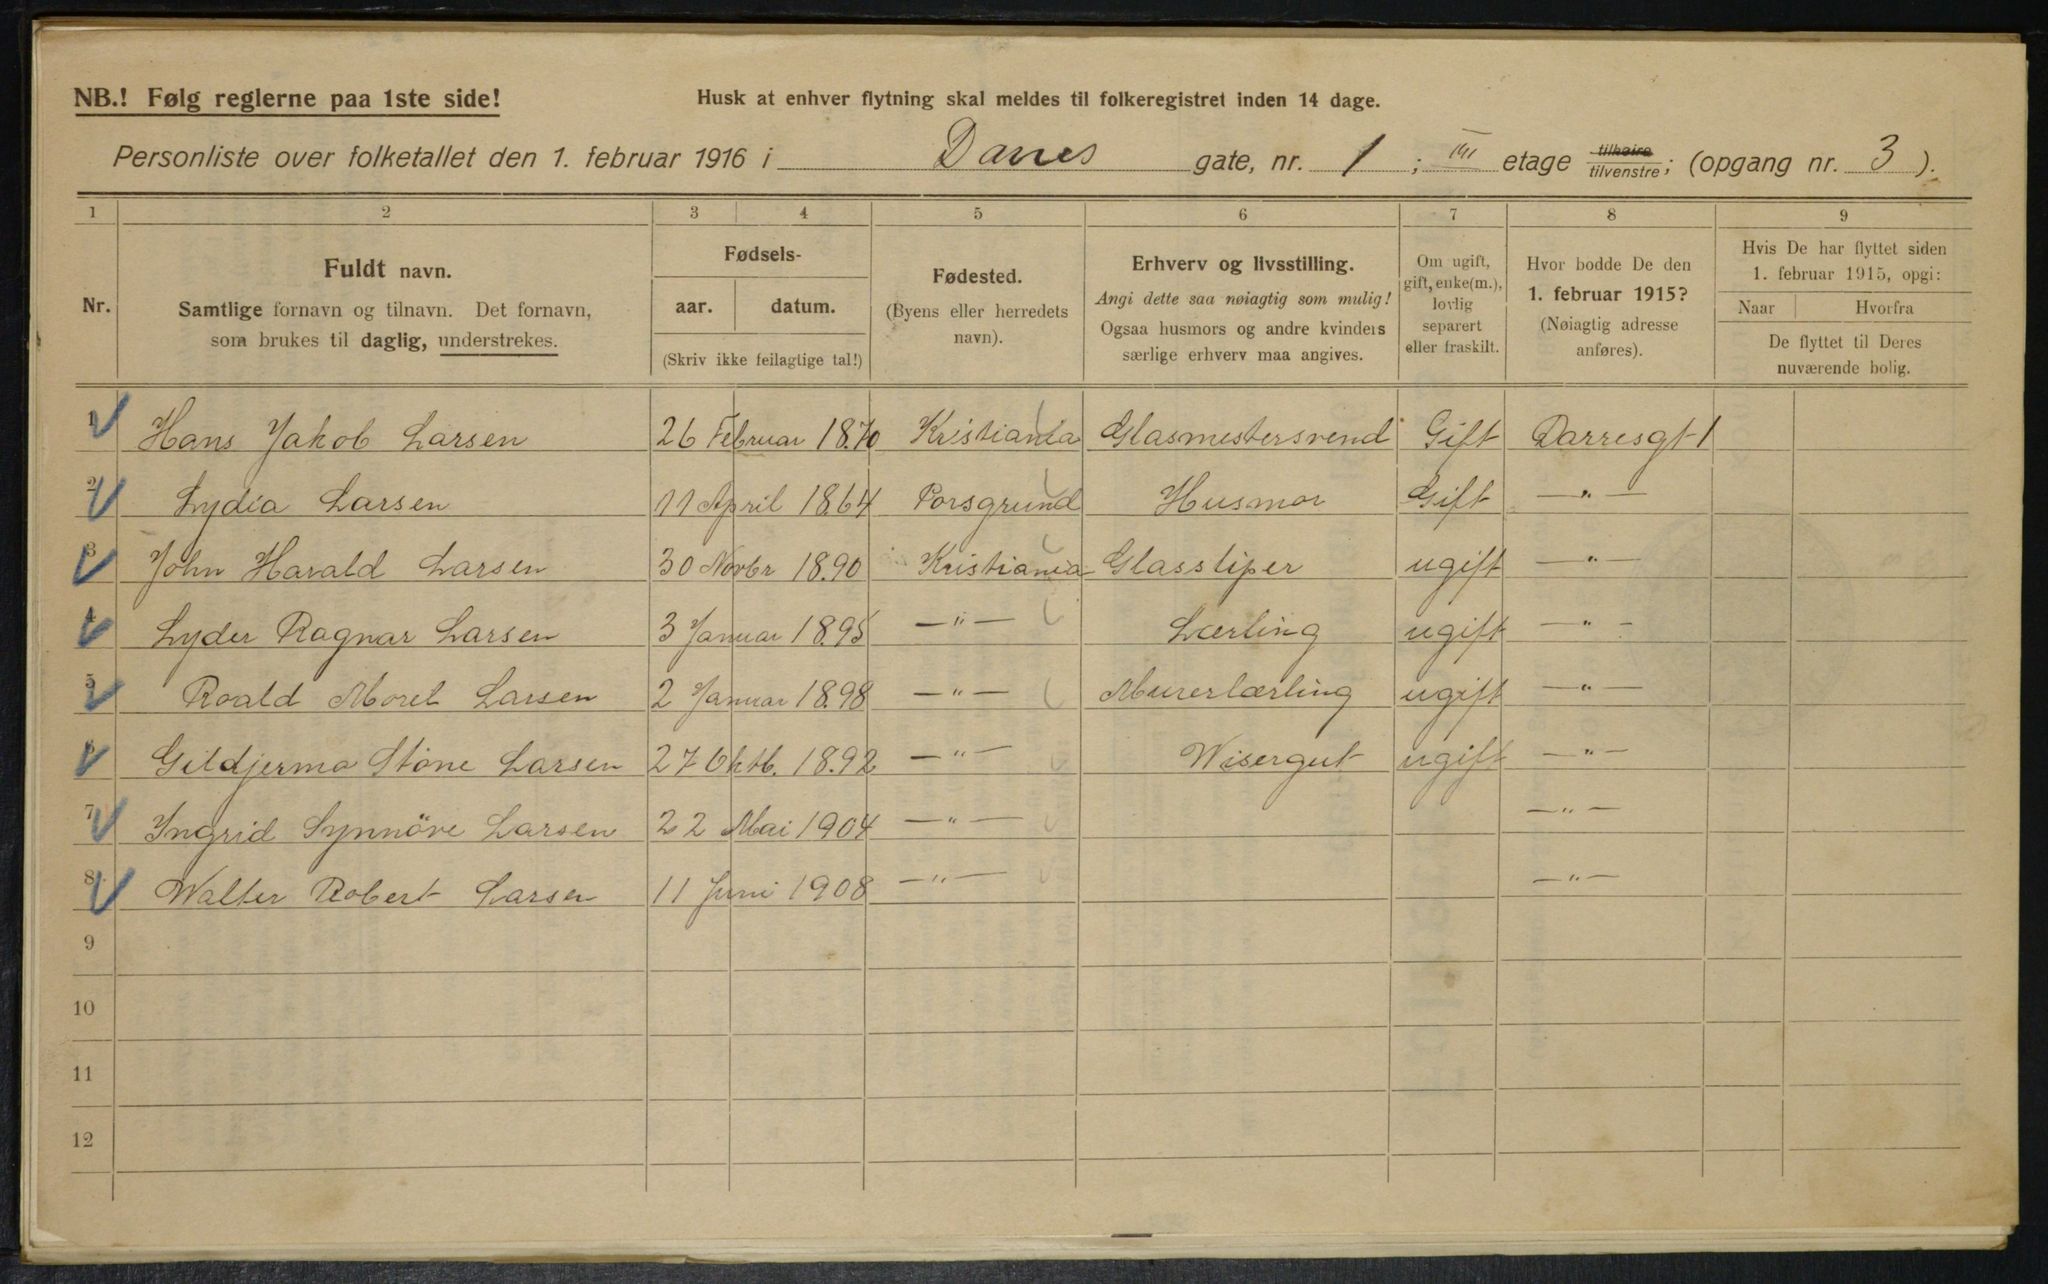 NB.! Følg reglerne paa 1ste side!
Husk at enhver flytning skal meldes til folkeregistret inden 14 dage.
Personliste over folketallet den 1. februar 1916 i Darres gate, nr. 1 ; III etage tilhøire/tilvenstre; (opgang nr. 3 ).
1 2 3 4 5 6 7 8 9
Nr.
Fuldt navn.
Samtlige fornavn og tilnavn. Det fornavn,
som brukes til daglig, understrekes.
Fødsels-
aar. datum.
(Skriv ikke feilagtige tal!)
Fødested.
(Byens eller herredets
navn).
Erhverv og livsstilling.
Angi dette saa nøiagtig som mulig!
Ogsaa husmors og andre kvinders
særlige erhverv maa angives.
Om ugift,
gift, enke(m.),
lovlig
separert
eller fraskilt.
Hvor bodde De den
1. februar 1915?
(Nøiagtig adresse
anføres).
Hvis De har flyttet siden
1. februar 1915, opgi:
Naar Hvorfra
De flyttet til Deres
nuværende bolig.
1 Hans Jakob Larsen 26 Februar 1870 Kristiania Glasmestersvend Gift Darresgt 1
2 Lydia Larsen 11 April 1864 Porsgrund Husmor Gift —"—
3 John Harald Larsen 30 Novbr 1890 Kristiania Glassliper ugift —"—
4 Lyder Ragnar Larsen 3 Januar 1895 —"— Lærling ugift —"—
5 Roald Morel Larsen 2 Januar 1898 —"— Murerlærling ugift —"—
6 Gildjerma Stöne Larsen 27 Oktb. 1892 —"— Wisergut ugift —"—
7 Ingrid Synnöve Larsen 22 Mai 1904 —"— —"—
8 Walter Robert Larsen 11 Juni 1908 —"— —"—
9
10
11
12